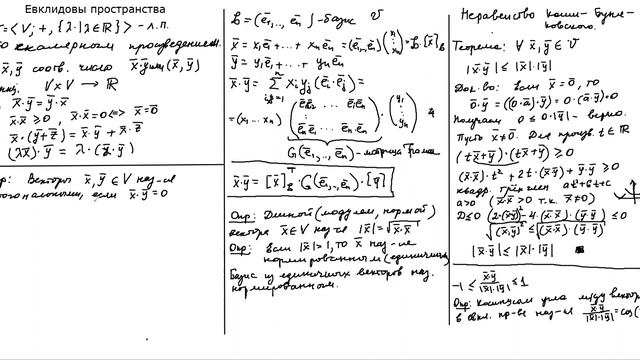 Евклидовы пространства
=<V; +, {λ·|λ∈ℝ}> - л.п.
скалярным произведением.
x̄,ȳ соотв. число x̄·ȳ или (x̄,ȳ)
V×V → ℝ
x̄·ȳ=ȳ·x̄
x̄·x̄ ≥0, x̄·x̄=0 ⟺ x̄=0̄
x̄·(ȳ+z̄)=x̄·ȳ+x̄·z̄
(λx̄)·ȳ = λ·(x̄·ȳ)
р: Векторы x̄,ȳ∈V наз-ся
ортогональными, если x̄·ȳ=0
B=(ē₁,.., ēₙ)-базис V
x̄=x₁ē₁+...+xₙēₙ=(ē₁,..,ēₙ)(x₁ ⋮ xₙ)=B·[x̄]_B
ȳ=y₁ē₁+...+yₙēₙ
x̄·ȳ = Σ xᵢyⱼ(ēᵢ·ēⱼ)=
n
i,j=1
=(x₁...xₙ)·(ē₁ē₁ ... ē₁ēₙ ⋮ ēₙē₁ ... ēₙēₙ)·(y₁ ⋮ yₙ)
G(ē₁,.., ēₙ)-матрица Грама
x̄·ȳ=[x̄]ᵀ_B·G(ē₁,..,ēₙ)·[ȳ]
Опр: Длиной (модулем, нормой)
вектора x̄∈V наз-ся |x̄|=√x̄·x̄
Опр: Если |x̄|=1, то x̄ наз-ся
нормированным (единичным)
Базис из единичных векторов наз.
нормированным.
Неравенство Коши-Буня-
ковского.
Теорема: ∀ x̄,ȳ∈V
|x̄·ȳ|≤|x̄|·|ȳ|
Док-во: Если x̄=0̄, то
0̄·ȳ=(0·ā)·ȳ=0·(ā·ȳ)=0
Получаем 0≤0·|ȳ| - верно.
Пусть x̄≠0̄. Для произв. t∈ℝ
(tx̄+ȳ)·(tx̄+ȳ)≥0
(x̄·x̄)·t²+2t·(x̄·ȳ)+ȳ·ȳ≥0
квадр. трёхчлен at²+bt+c
a>0 (x̄·x̄>0 т.к. x̄≠0̄)
D≤0 (2·(x̄ȳ))²-4·(x̄·x̄)·(ȳ·ȳ)≤0
√(x̄·ȳ)² ≤ √(x̄·x̄)·(ȳ·ȳ)
|x̄·ȳ|≤|x̄|·|ȳ|
-1 ≤ x̄·ȳ/|x̄|·|ȳ| ≤ 1
Опр: Косинусом угла между вектор
в евкл. пр-ве наз-ся x̄·ȳ/|x̄|·|ȳ|=cos(